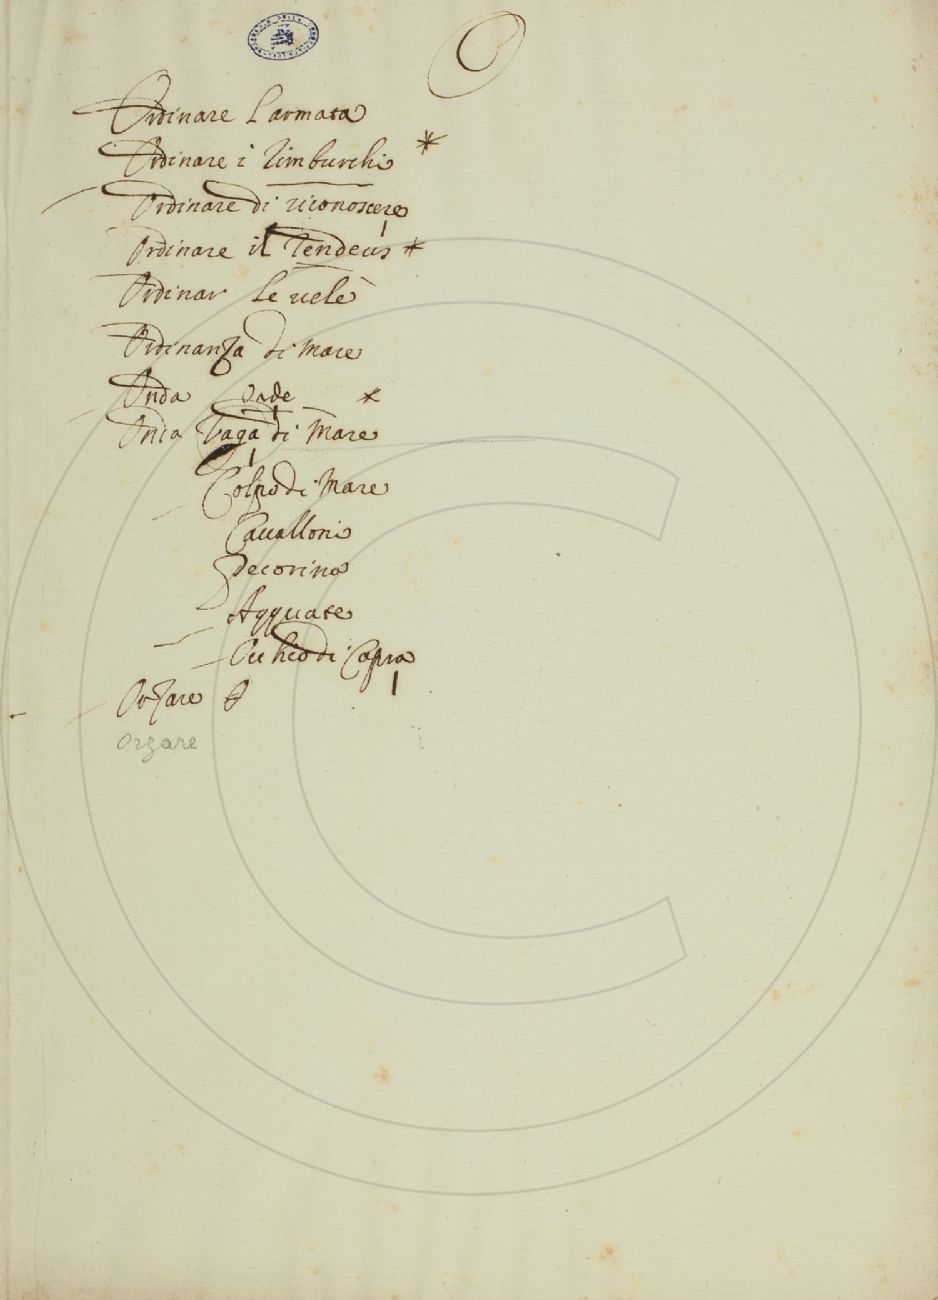 O
Ordinare l'armata
Ordinare i Timburchi *
Ordinare di riconoscere
Ordinare il Tendeus *
Ordinar le uele
Ordinanza di mare
Onda onde *
Onda Vaga di Mare
Colpo di Mare
Caualloni
Decorino
Agguate
Occhio di Capra
Orzare
Orzare